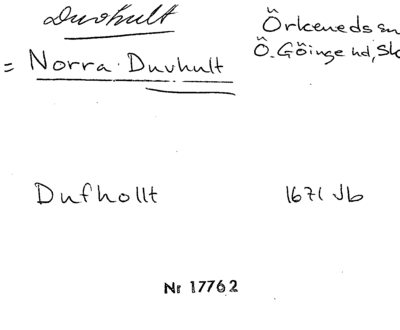 Duvhult
Örkeneds sn
= Norra Duvhult
Ö. Göinge hd, Sk
Dufhollt
1671 Jb
Nr 17762